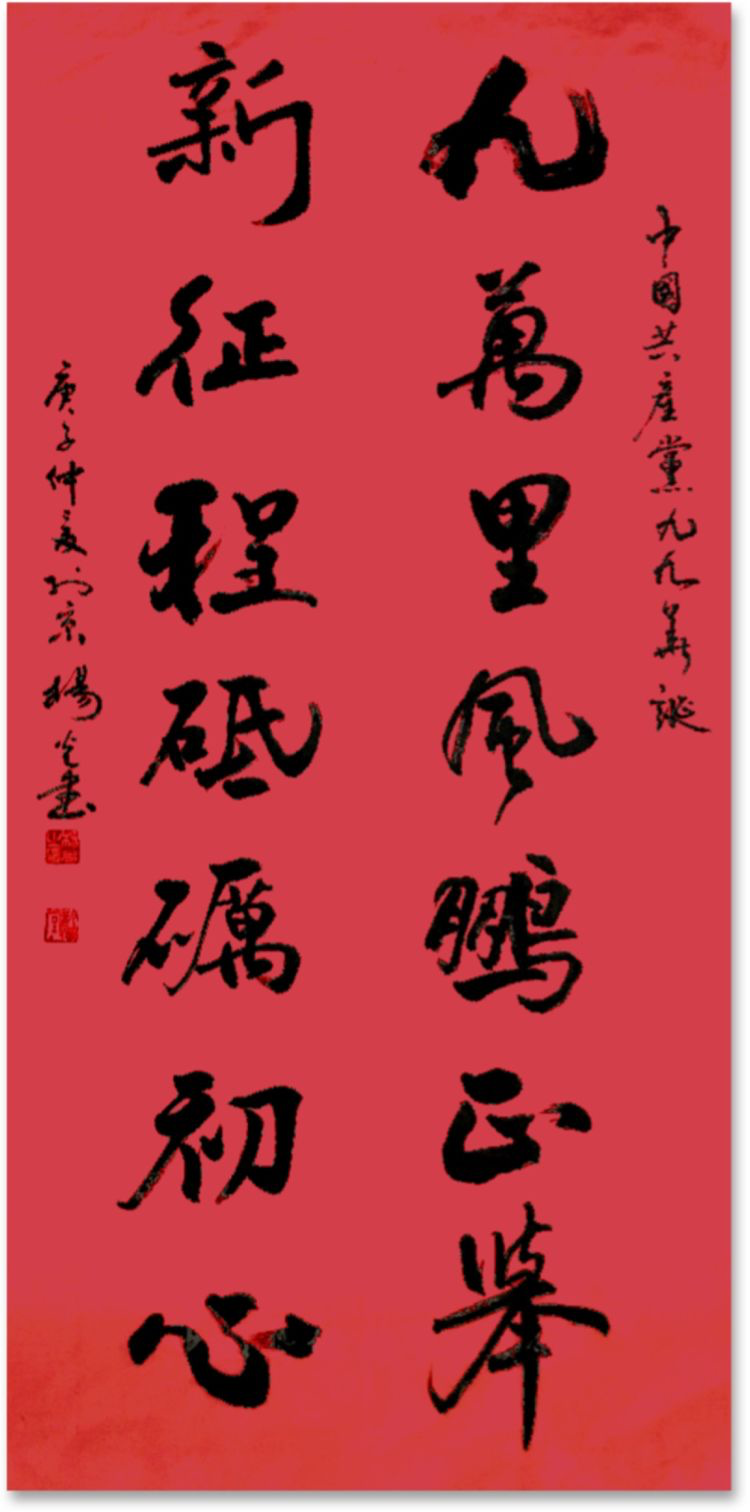 中國共產黨九九華誕
九萬里風鵬正舉
新征程砥礪初心
庚子仲夏於京楊光書